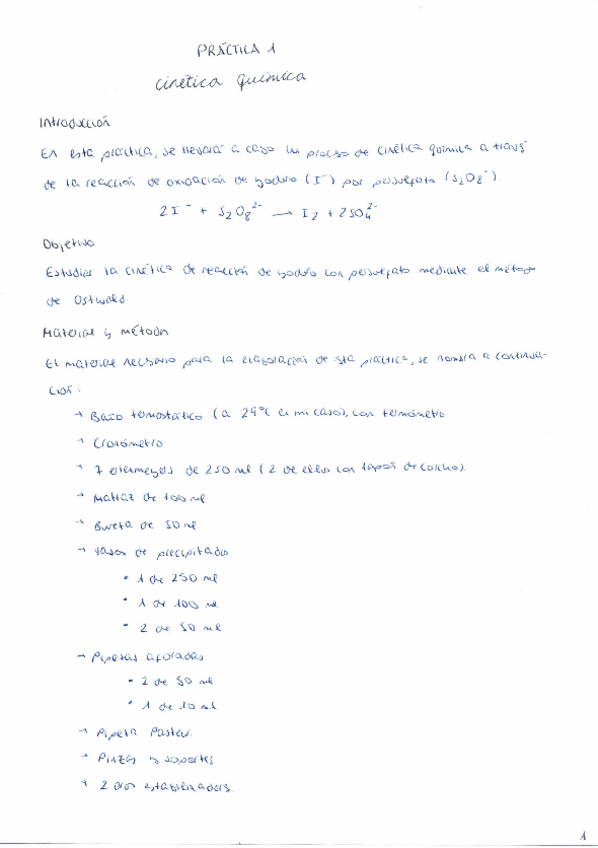 PRÁCTICA 1
Cinética Química
Introducción
En esta práctica, se llevará a cabo un proceso de cinética química a través
de la reacción de oxidación de yoduro (I⁻) por persulfato (S₂O₈²⁻).
2I⁻ + S₂O₈²⁻ → I₂ + 2SO₄²⁻
Objetivo
Estudiar la cinética de reacción de yoduro con persulfato mediante el método
de Ostwald.
Material y métodos
El material necesario para la elaboración de esta práctica, se nombra a continua-
ción:
→ Baño termostático (a 24°C en mi caso), con termómetro
→ Cronómetro
→ 7 erlenmeyers de 250 ml (2 de ellos con tapón de corcho).
→ Matraz de 100 ml
→ Bureta de 50 ml
→ Vasos de precipitados
• 1 de 250 ml
• 1 de 100 ml
• 2 de 50 ml
→ Pipetas aforadas
• 2 de 50 ml
• 1 de 10 ml
→ Pipeta Pasteur.
→ Pinzas y soportes
→ 2
1